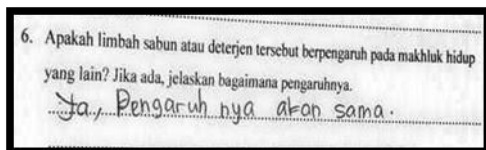 6. Apakah limbah sabun atau deterjen tersebut berpengaruh pada makhluk hidup
yang lain? Jika ada, jelaskan bagaimana pengaruhnya.
Ya, Pengaruh nya akan sama.